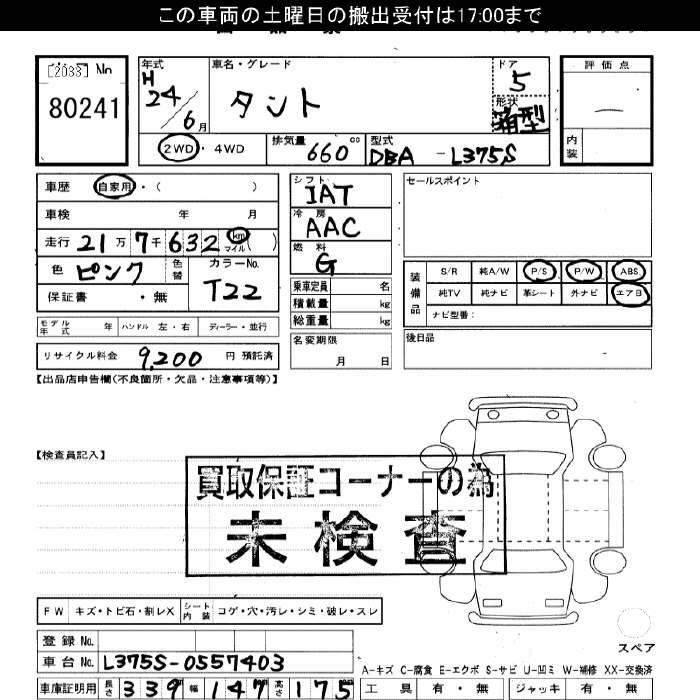 この車両の土曜日の搬出受付は17:00まで
[2033] No
80241
年式
H
24
6月
車名・グレード
タント
ドア
5
形状
箱型
評価点
―
内装
2WD ・ 4WD
排気量
660 cc
型式
DBA - L375S
車歴 自家用・( )
車検 年 月
走行 21万 7千 632 km マイル ( )
色 ピンク 色替 カラーNo. T22
保証書 ・ 無
モデル年式 年 ハンドル 左・右 ディーラー・並行
リサイクル料金 9,200 円 預託済
シフト
IAT
冷房
AAC
燃料
G
乗車定員 名
積載量 kg
総重量 kg
名変期限
月 日
セールスポイント
装備品
S/R 純A/W P/S P/W ABS
純TV 純ナビ 革シート 外ナビ エアB
ナビ型番:
後日品
【出品店申告欄(不良箇所・欠品・注意事項等)】
【検査員記入】
買取保証コーナーの為
未検査
FW キズ・トビ石・割レX シート内装 コゲ・穴・汚レ・シミ・破レ・スレ
登録 No.
車台 No. L375S-0557403
車庫証明用 長さ 339 幅 147 高さ 175
スペア
A-キズ C-腐食 E-エクボ S-サビ U-凹ミ W-補修 XX-交換済
工具 有・無 ジャッキ 有・無